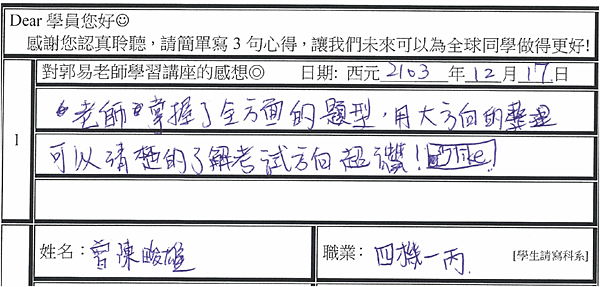 Dear 學員您好☺
感謝您認真聆聽，請簡單寫 3 句心得，讓我們未來可以為全球同學做得更好!
對郭易老師學習講座的感想◎ 日期: 西元 2103 年 12 月 17 日
1
老師掌握了全方面的題型，用大方向的整理
可以清楚的了解考試方向超讚! like!
姓名： 曾陳 職業： 四機一丙. [學生請寫科系]